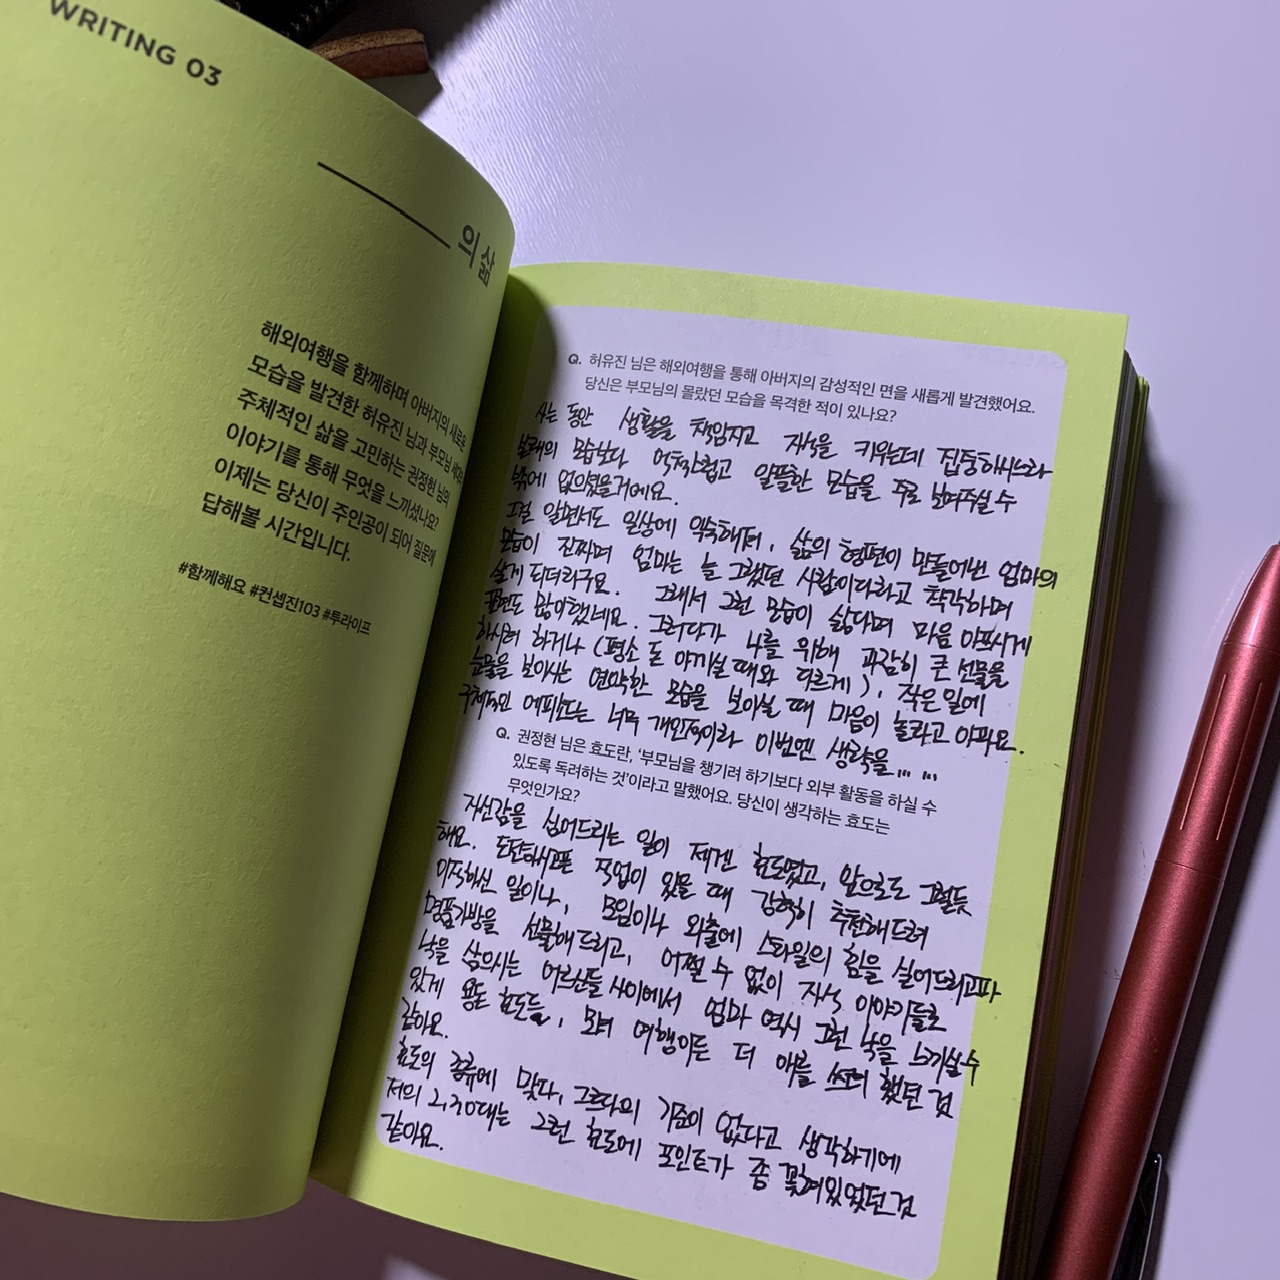 WRITING 03
의 삶
해외여행을 함께하며 아버지의 새로운
모습을 발견한 허유진 님과 부모님 세대의
주체적인 삶을 고민하는 권정현 님의
이야기를 통해 무엇을 느끼셨나요?
이제는 당신이 주인공이 되어 질문에
답해볼 시간입니다.
#함께해요 #컨셉진103 #투라이프
Q. 허유진 님은 해외여행을 통해 아버지의 감성적인 면을 새롭게 발견했어요.
당신은 부모님의 몰랐던 모습을 목격한 적이 있나요?
사는 동안 생활을 책임지고 자식을 키우는데 집중하시느라
본래의 모습보다 억척스럽고 알뜰한 모습을 주로 보여주실 수
밖에 없으셨을거에요.
그걸 알면서도 일상에 익숙해져, 삶의 형편이 만들어낸 엄마의
모습이 진짜며 엄마는 늘 그랬던 사람이다라고 착각하며
살게 되더라구요. 그래서 그런 모습이 싫다며 마음 아프시게
표현도 많이했네요. 그러다가 나를 위해 과감히 큰 선물을
하시려 하거나 (평소 돈 아끼실 때와 다르게), 작은 일에
눈물을 보이시는 연약한 모습을 보이실 때 마음이 놀라고 아파요.
구체적인 에피소드는 너무 개인적이라 이번엔 생략을... ...
Q. 권정현 님은 효도란, '부모님을 챙기려 하기보다 외부 활동을 하실 수
있도록 독려하는 것'이라고 말했어요. 당신이 생각하는 효도는
무엇인가요?
자신감을 심어드리는 일이 제겐 효도였고, 앞으로도 그럴듯
해요. 도전하시고픈 직업이 있을 때 강력히 추천해드려
이직하신 일이나, 모임이나 외출에 스타일의 힘을 실어드리고파
명품가방을 선물해드리고, 어쩔 수 없이 자식 이야기들로
낙을 삼으시는 어르신들 사이에서 엄마 역시 그런 낙을 느끼실 수
있게 용돈 효도들, 모녀 여행이든 더 애를 쓰려 했던 것
같아요.
효도의 종류에 맞다, 그르다의 기준이 없다고 생각하기에
저의 2,30대는 그런 효도에 포인트가 좀 꽂혀있었던 것
같아요.